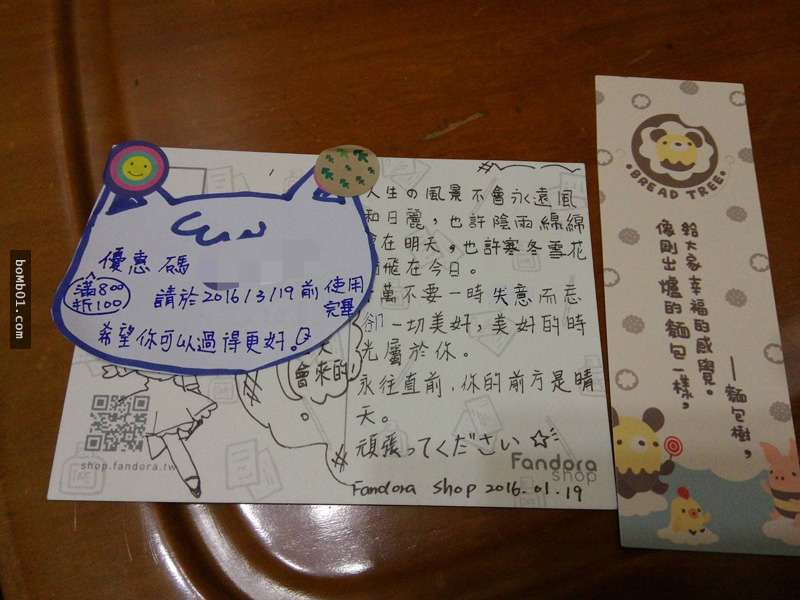 優惠碼
滿800
折100
請於2016/3/19前使用
完畢
希望你可以過得更好!
會來的!
shop.fandora.tw
人生の風景不會永遠風
和日麗,也許陰雨綿綿
在明天,也許寒冬雪花
飛在今日。
萬不要一時失意而忘
卻一切美好,美好的時
光屬於你。
永往直前,你的前方是晴
天。
頑張ってください☆
Fandora
shop
Fandora Shop 2016.01.19
BREAD TREE
給大家幸福的感覺。
像剛出爐的麵包一樣,
——麵包樹,
boMb01.com